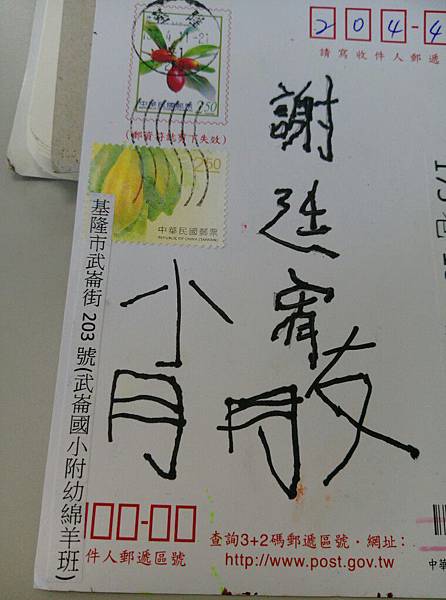 204-4
請寫收件人郵遞
中華民國郵票 250
(郵資符誌剪下失效)
250
中華民國郵票
REPUBLIC OF CHINA (TAIWAN)
謝
宥
小朋友
基隆市武崙街 203 號(武崙國小附幼綿羊班)
00-00
件人郵遞區號
查詢3+2碼郵遞區號‧網址：
http://www.post.gov.tw
中華